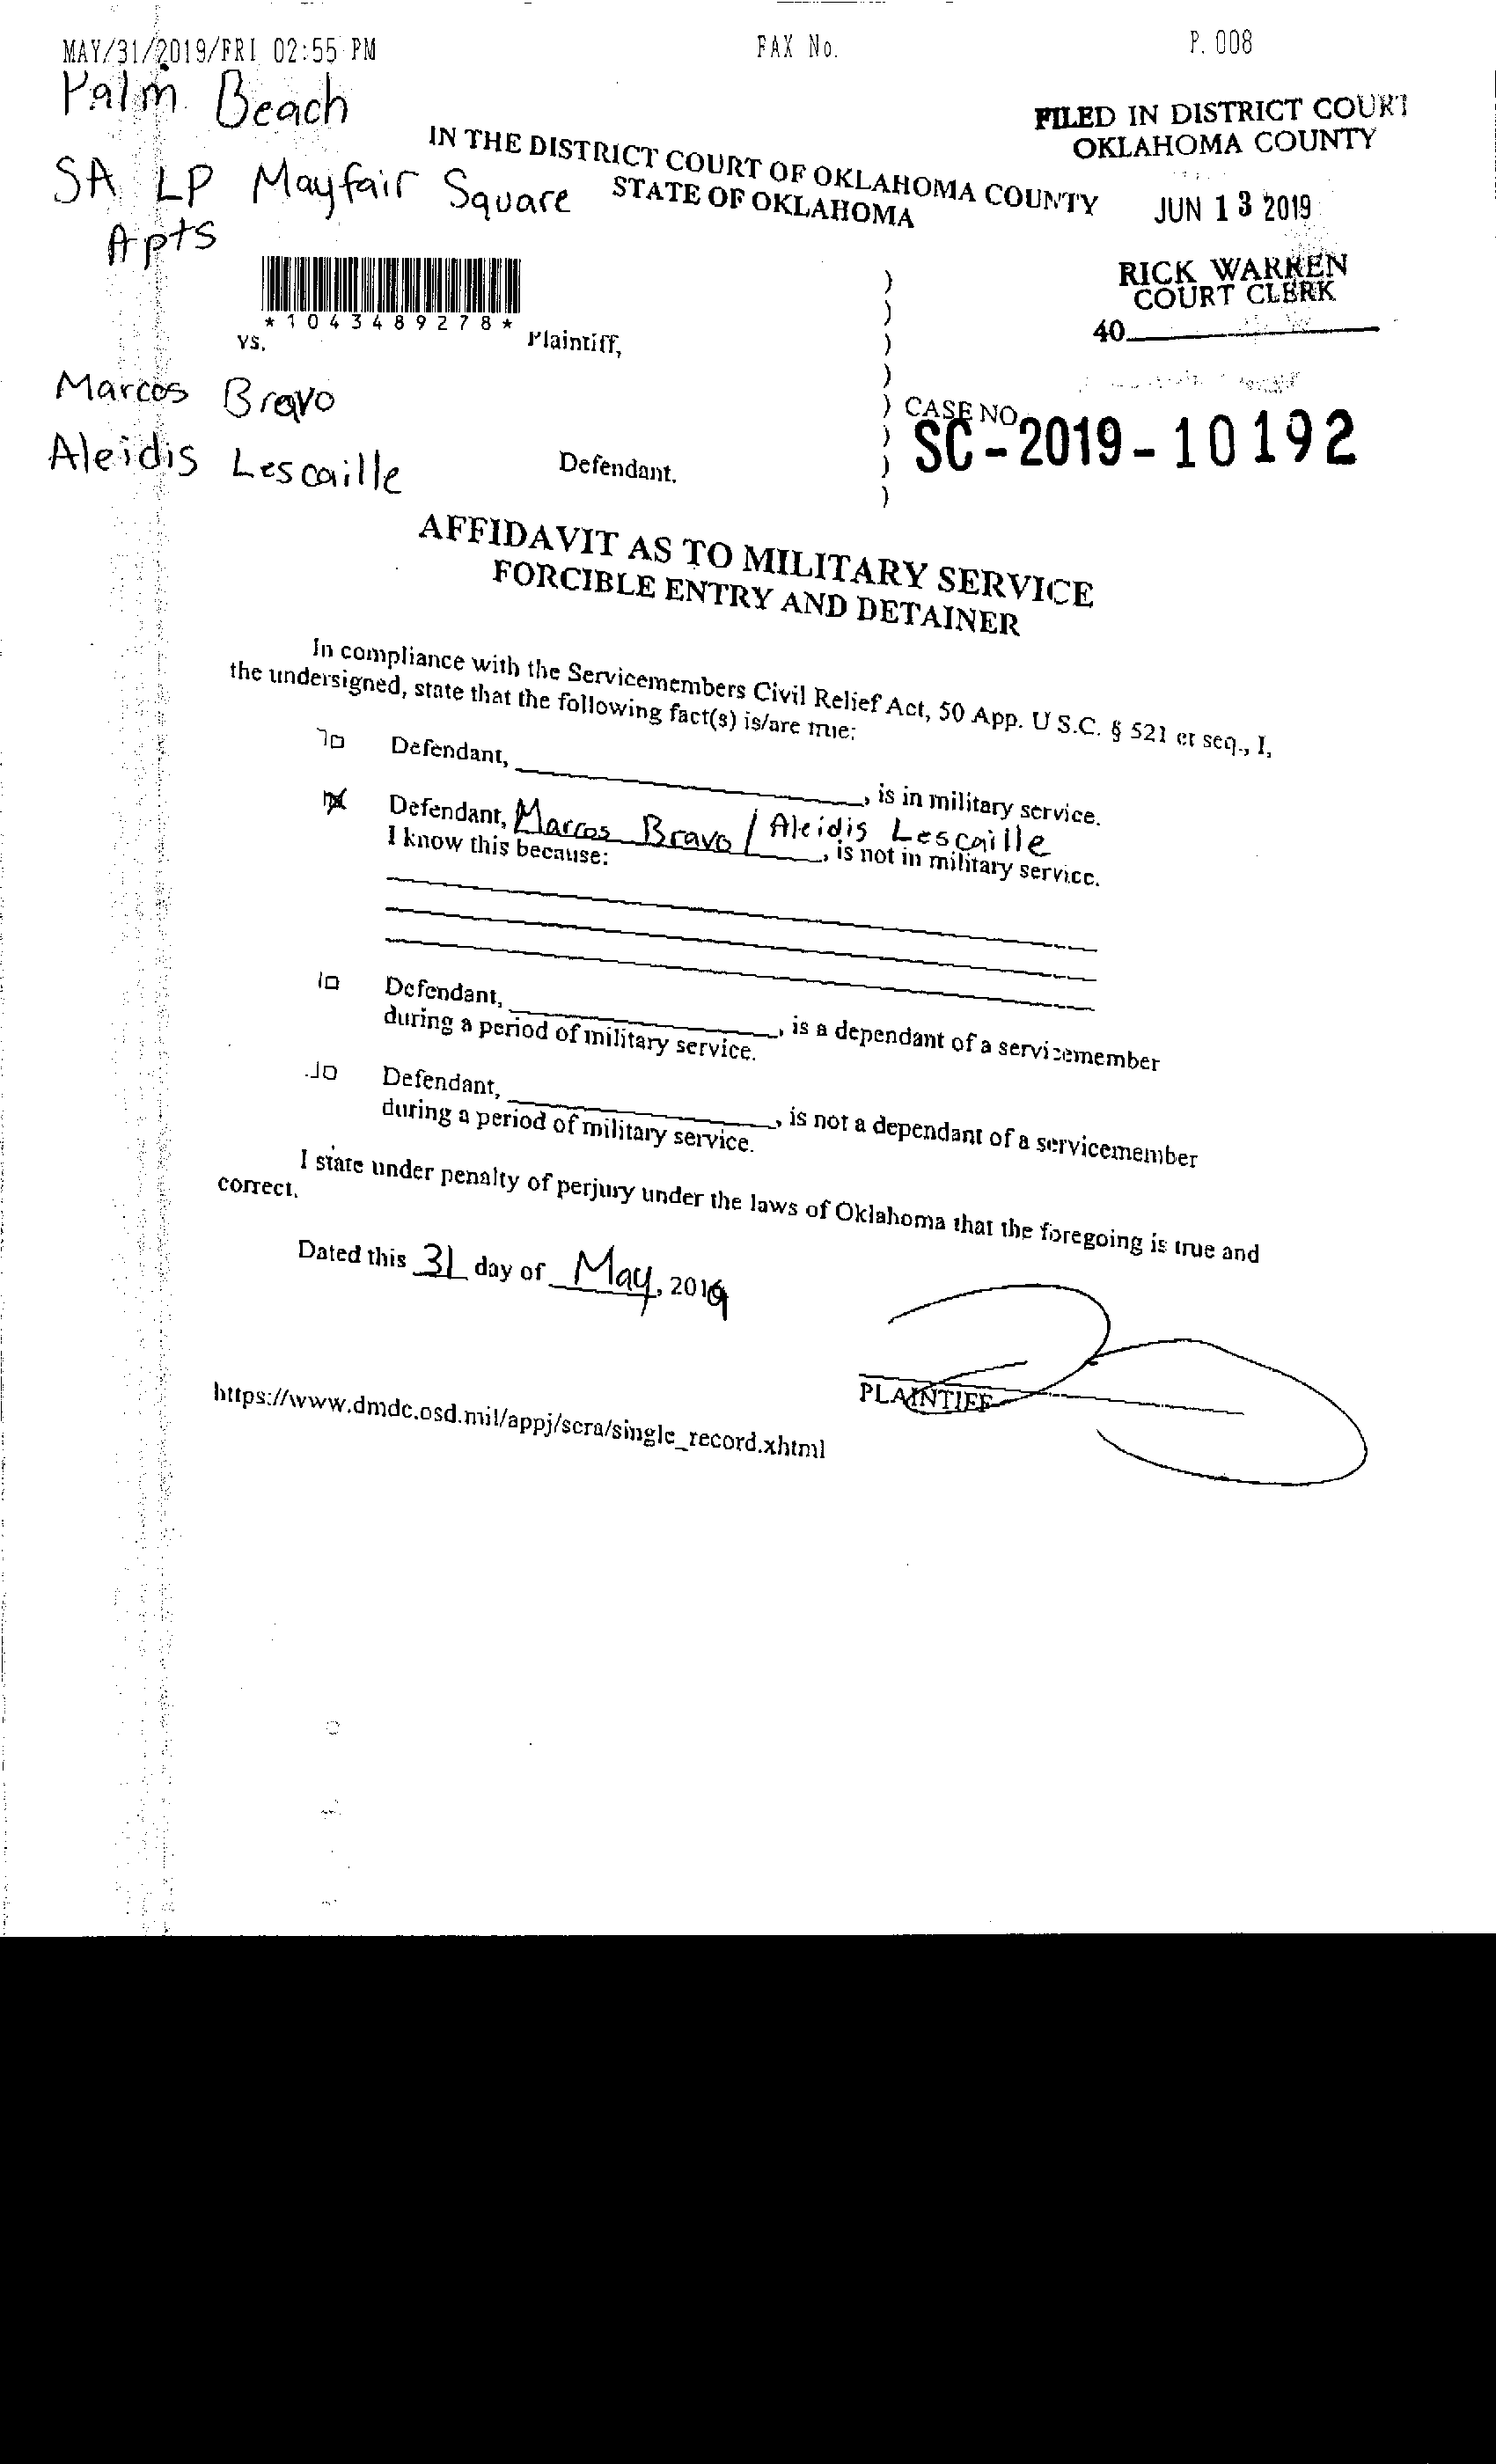 MAY/31/2019/FRI 02:55 PM FAX No. P. 008
Palm Beach
SA LP Mayfair Square
Apts
IN THE DISTRICT COURT OF OKLAHOMA COUNTY
STATE OF OKLAHOMA
FILED IN DISTRICT COURT
OKLAHOMA COUNTY
JUN 13 2019
RICK WARREN
COURT CLERK
40
*1043489278*
Plaintiff,
vs.
Marcos Bravo
Aleidis Lescaille
Defendant.
)
)
)
)
)
)
)
)
CASE NO.
SC-2019-10192
AFFIDAVIT AS TO MILITARY SERVICE
FORCIBLE ENTRY AND DETAINER
In compliance with the Servicemembers Civil Relief Act, 50 App. U S.C. § 521 et seq., I,
the undersigned, state that the following fact(s) is/are true:
Defendant, , is in military service.
Defendant, Marcos Bravo / Aleidis Lescaille, is not in military service.
I know this because:
Defendant, , is a dependant of a servicemember
during a period of military service.
Defendant, , is not a dependant of a servicemember
during a period of military service.
I state under penalty of perjury under the laws of Oklahoma that the foregoing is true and
correct.
Dated this 31 day of May, 2019
PLAINTIFF
https://www.dmdc.osd.mil/appj/scra/single_record.xhtml